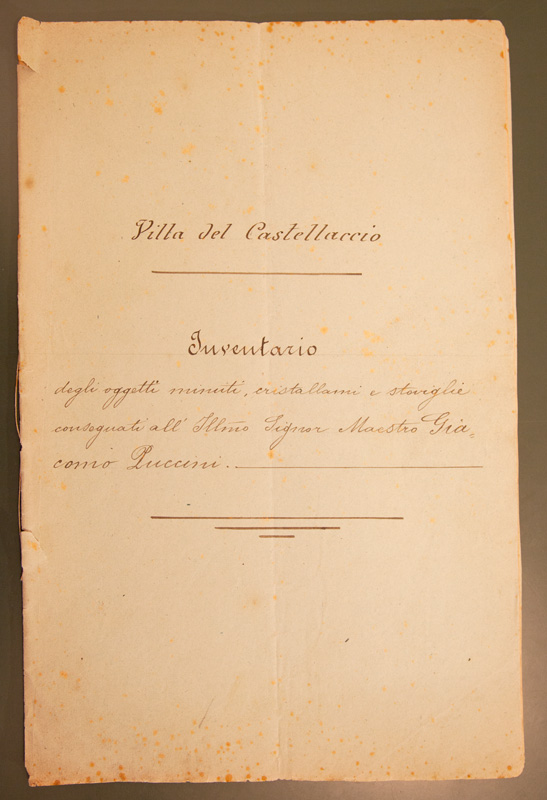 Villa del Castellaccio
Inventario
degli oggetti minuti, cristallami e stoviglie
consegnati all' Illmo Signor Maestro Gia=
como Puccini.